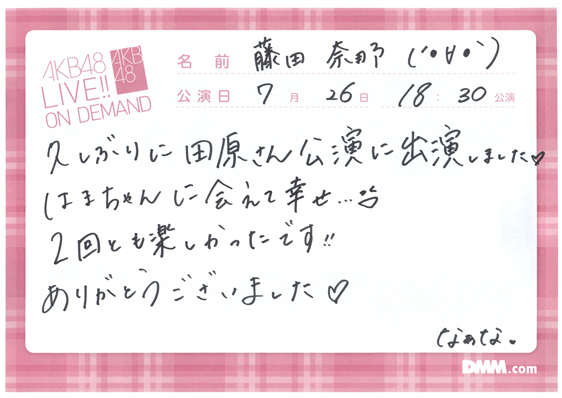 AKB48
LIVE!!
ON DEMAND
AKB
48
名前 藤田 奈那 (´•∀•`)
公演日 7月 26日 18:30公演
久しぶりに田原さん公演に出演しました♡
はまちゃんに会えて幸せ…
2回とも楽しかったです!!
ありがとうございました♡
なぁな。
DMM.com